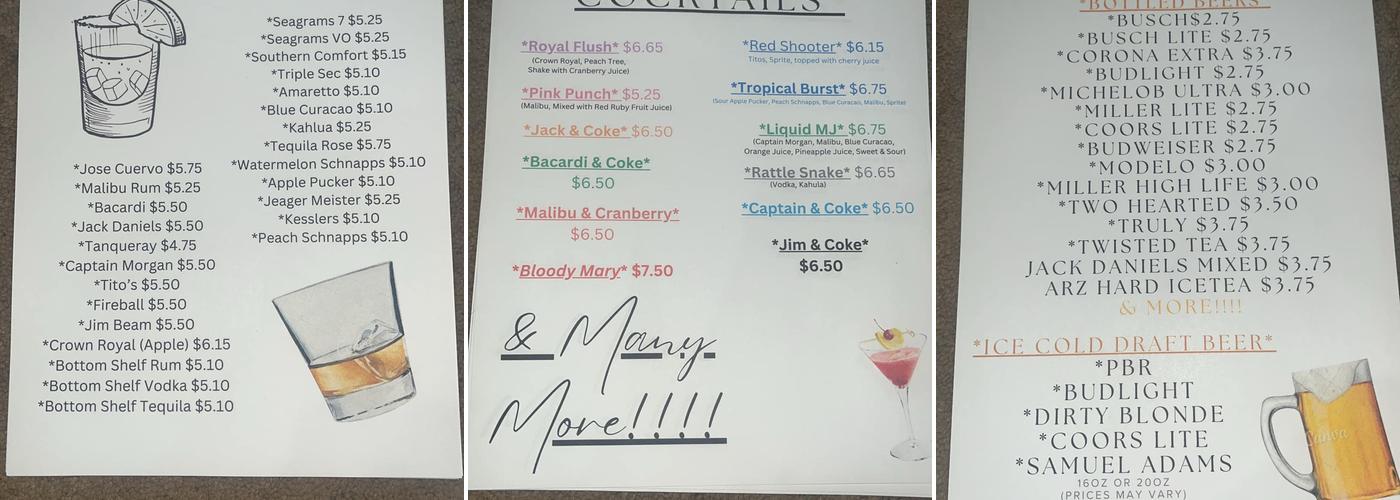 *Seagrams 7 $5.25
*Seagrams VO $5.25
*Southern Comfort $5.15
*Triple Sec $5.10
*Amaretto $5.10
*Blue Curacao $5.10
*Kahlua $5.25
*Tequila Rose $5.75
*Watermelon Schnapps $5.10
*Apple Pucker $5.10
*Jeager Meister $5.25
*Kesslers $5.10
*Peach Schnapps $5.10
*Jose Cuervo $5.75
*Malibu Rum $5.25
*Bacardi $5.50
*Jack Daniels $5.50
*Tanqueray $4.75
*Captain Morgan $5.50
*Tito's $5.50
*Fireball $5.50
*Jim Beam $5.50
*Crown Royal (Apple) $6.15
*Bottom Shelf Rum $5.10
*Bottom Shelf Vodka $5.10
*Bottom Shelf Tequila $5.10
COCKTAILS
*Royal Flush* $6.65
(Crown Royal, Peach Tree,
Shake with Cranberry Juice)
*Pink Punch* $5.25
(Malibu, Mixed with Red Ruby Fruit Juice)
*Jack & Coke* $6.50
*Bacardi & Coke*
$6.50
*Malibu & Cranberry*
$6.50
*Bloody Mary* $7.50
*Red Shooter* $6.15
Titos, Sprite, topped with cherry juice
*Tropical Burst* $6.75
(Sour Apple Pucker, Peach Schnapps, Blue Curacao, Malibu, Sprite)
*Liquid MJ* $6.75
(Captain Morgan, Malibu, Blue Curacao,
Orange Juice, Pineapple Juice, Sweet & Sour)
*Rattle Snake* $6.65
(Vodka, Kahula)
*Captain & Coke* $6.50
*Jim & Coke*
$6.50
& Many
More!!!!
*BOTTLED BEERS*
*BUSCH$2.75
*BUSCH LITE $2.75
*CORONA EXTRA $3.75
*BUDLIGHT $2.75
*MICHELOB ULTRA $3.00
*MILLER LITE $2.75
*COORS LITE $2.75
*BUDWEISER $2.75
*MODELO $3.00
*MILLER HIGH LIFE $3.00
*TWO HEARTED $3.50
*TRULY $3.75
*TWISTED TEA $3.75
JACK DANIELS MIXED $3.75
ARZ HARD ICETEA $3.75
& MORE!!!!
*ICE COLD DRAFT BEER*
*PBR
*BUDLIGHT
*DIRTY BLONDE
*COORS LITE
*SAMUEL ADAMS
16OZ OR 20OZ
(PRICES MAY VARY)
Canva